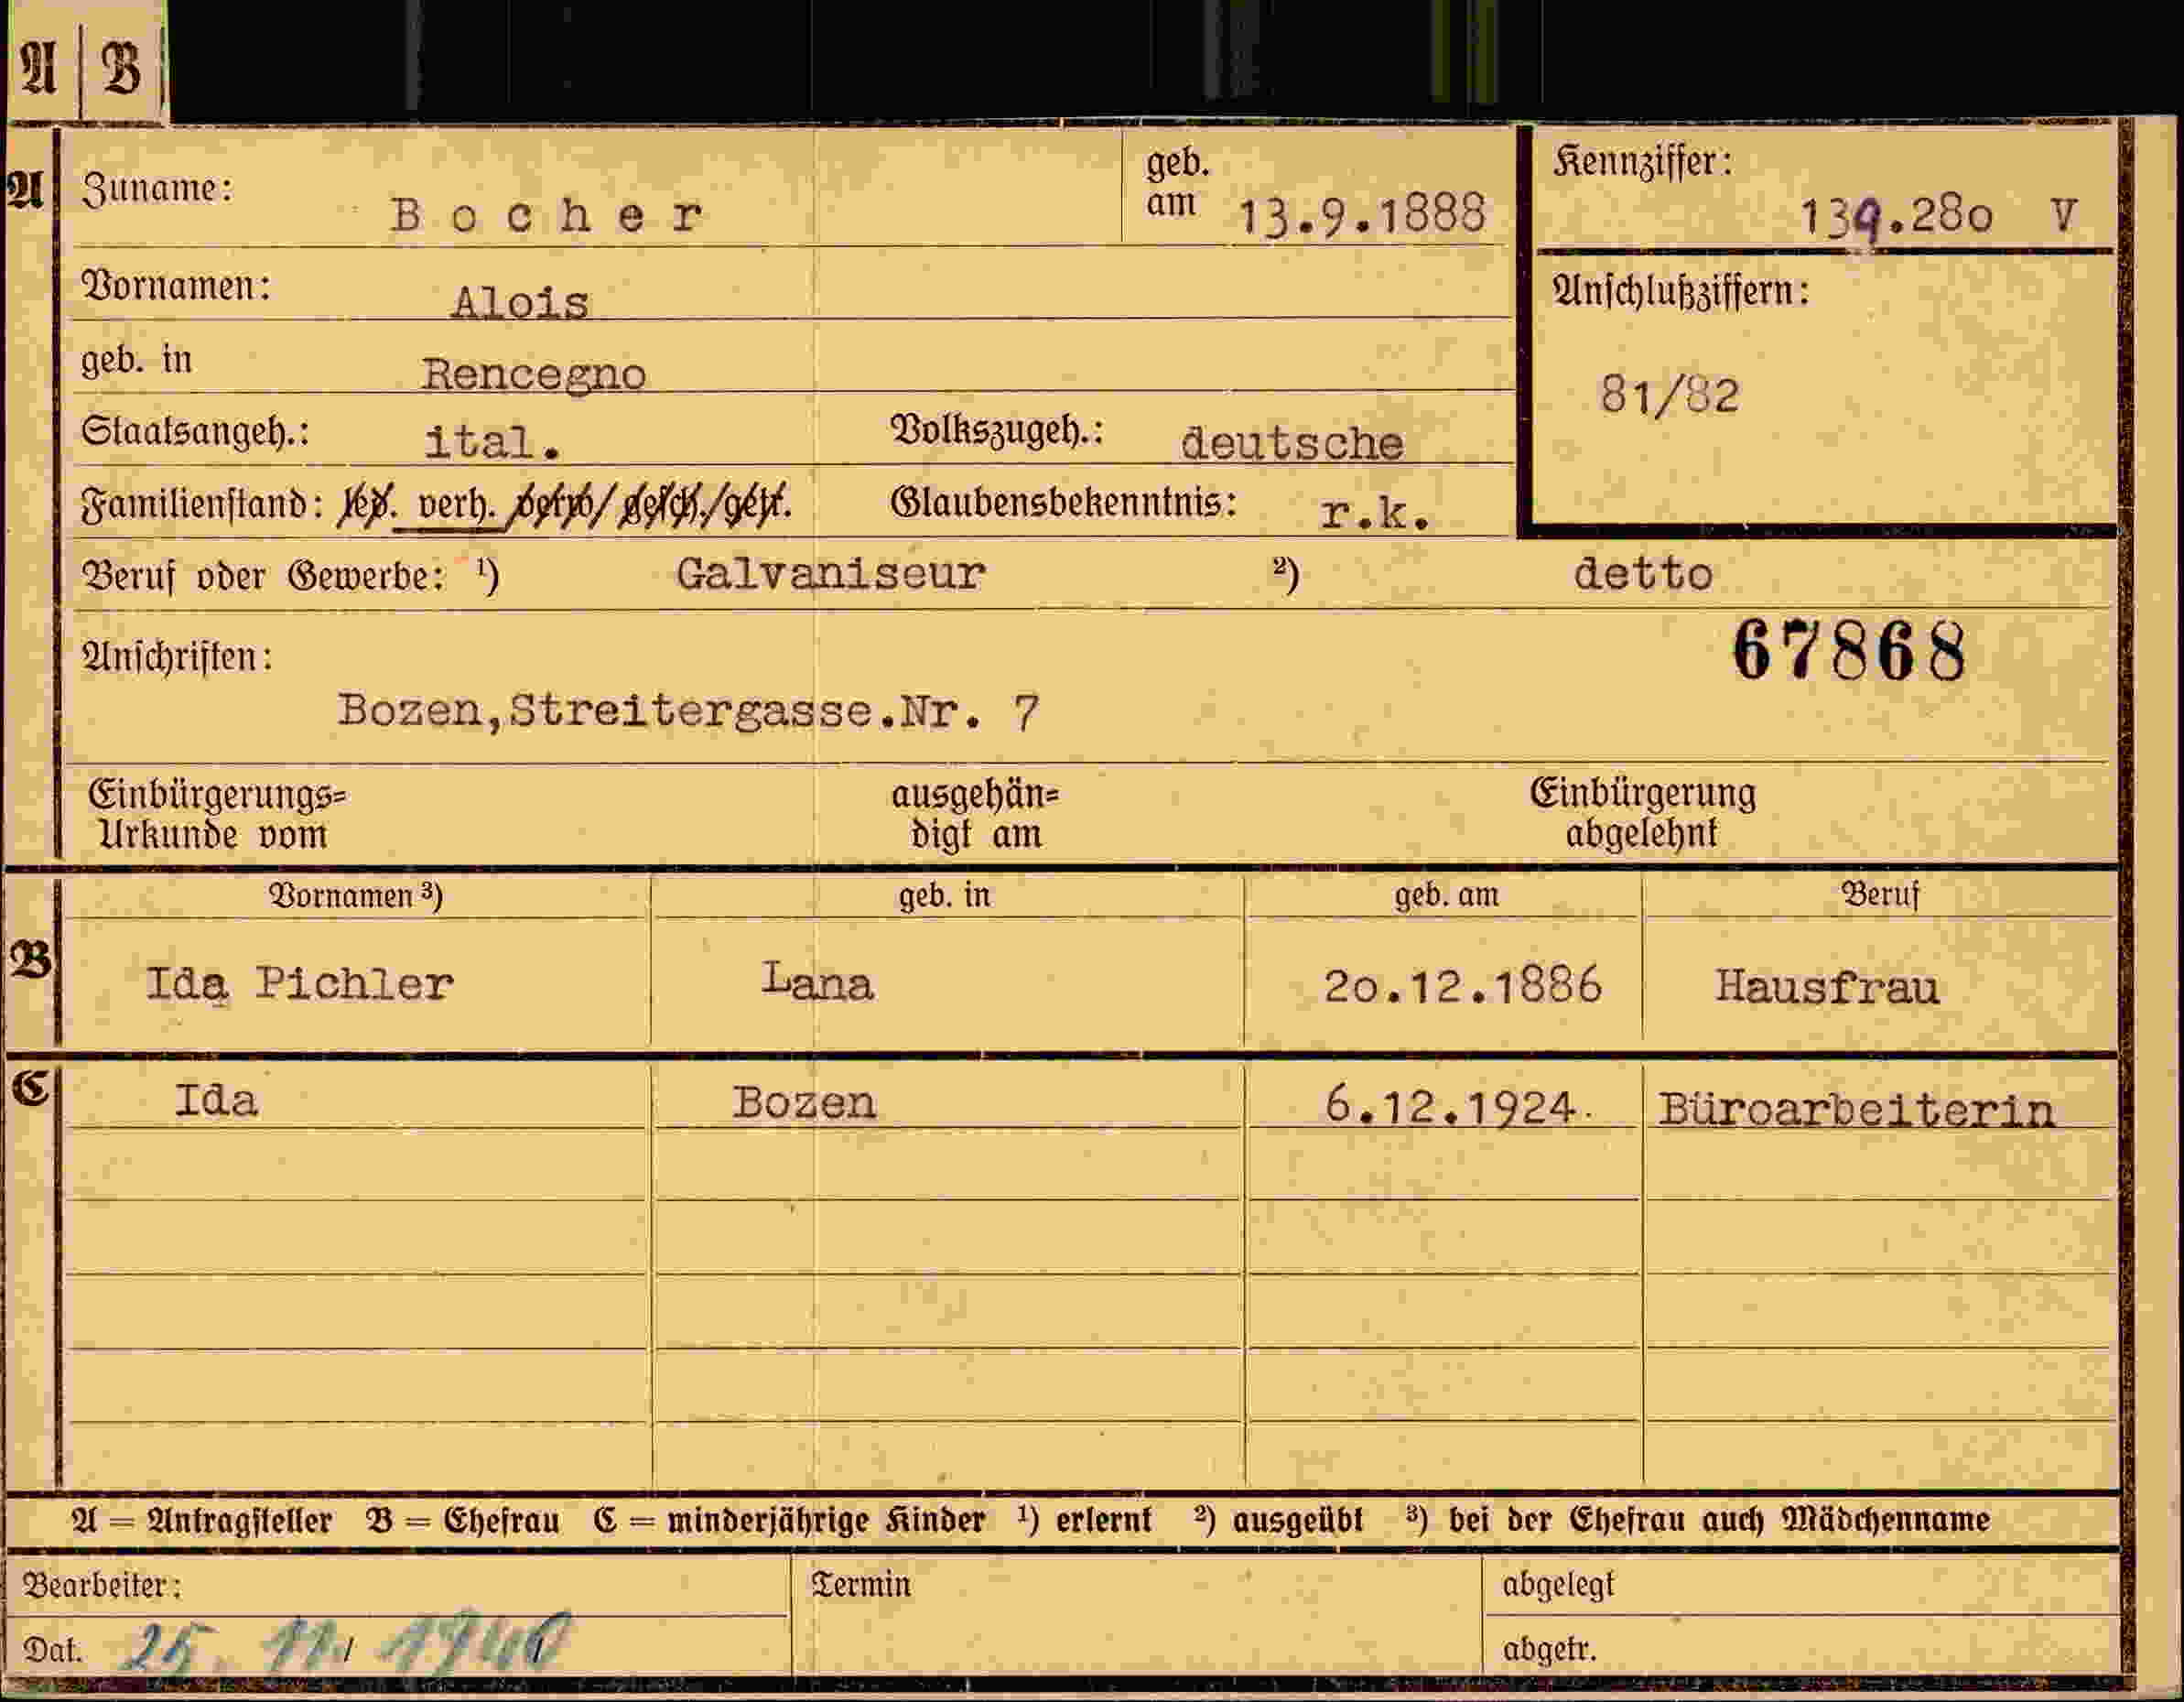 A B
A Zuname: Bocher geb. am 13.9.1888 Kennziffer: 139.28o V
Vornamen: Alois Anschlußziffern:
geb. in Rencegno 81/82
Staatsangeh.: ital. Volkszugeh.: deutsche
Familienstand: led. verh. verw/gesch./getr. Glaubensbekenntnis: r.k.
Beruf oder Gewerbe: ¹) Galvaniseur ²) detto
Anschriften: 67868
Bozen,Streitergasse.Nr. 7
Einbürgerungs= ausgehän= Einbürgerung
Urkunde vom digt am abgelehnt
Vornamen ³) geb. in geb. am Beruf
B Ida Pichler Lana 2o.12.1886 Hausfrau
C Ida Bozen 6.12.1924. Büroarbeiterin
A = Antragsteller B = Ehefrau C = minderjährige Kinder ¹) erlernt ²) ausgeübt ³) bei der Ehefrau auch Mädchenname
Bearbeiter: Termin abgelegt
Dat. 25. 11. 1940 abgetr.